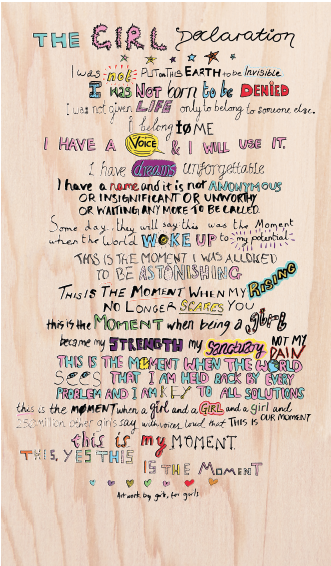 THE GIRL Declaration
I was not PUT ON THIS EARTH to be Invisible
I WAS NOT born to be DENIED
I was not given LIFE only to belong to someone else.
I belong tO ME
I HAVE A VOICE & I WILL USE IT.
I have dreams unforgettable
I have a name and it is not ANONYMOUS
OR INSIGNIFICANT OR UNWORTHY
OR WAITING ANY MORE TO BE CALLED.
Some day, they will say this was the Moment
when the world WOKE UP to my potential
THIS IS THE MOMENT I WAS ALLOWED
TO BE ASTONISHING
THIS IS THE MOMENT WHEN MY RISING
NO LONGER SCARES YOU
this is the MOMENT when being a girl
became my STRENGTH my sanctuary NOT MY PAIN
THIS IS THE MOMENT WHEN THE WORLD
SEES THAT I AM HELD BACK BY EVERY
PROBLEM AND I AM KEY TO ALL SOLUTIONS
this is the MOMENT when a girl and a GIRL and a girl and
250 million other girls say with voices loud that THIS IS OUR MOMENT
this is my MOMENT.
THIS, YES THIS
IS THE MOMENT
Artwork by girls, for girls